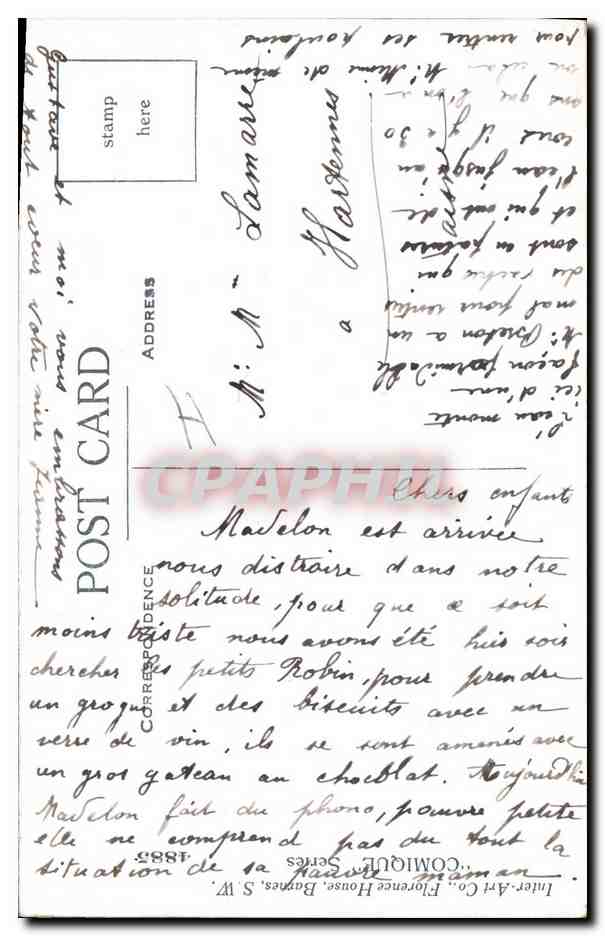 Chers enfants
Madelon est arrivée
nous distraire dans notre
solitude, pour que ce soit
moins triste nous avons été hier soir
chercher les petits Robin, pour prendre
un grogue et des biscuits avec un
verre de vin, ils se sont amenés avec
un gros gateau au chocolat. Aujourd'hui
Madelon fait du phono, pauvre petite
elle ne comprend pas du tout la
situation de sa pauvre maman.
l'eau monte
ici d'une
façon formidable
Mr Breton a un
mal pour rentrer
des vaches qui
sont en patures
et qui ont de
l'eau jusqu'au
il y a 30
ans que l'on a
pour rentrer ses poulains
Gustave et moi vous embrassons
de tout coeur votre mère
Mr Mme Lamarre
a Hartennes
Aisne
stamp
here
POST CARD
ADDRESS
CORRESPONDENCE
Inter-Art Co., Florence House, Barnes, S.W.
"COMIQUE" Series
1885
CPAPHIL